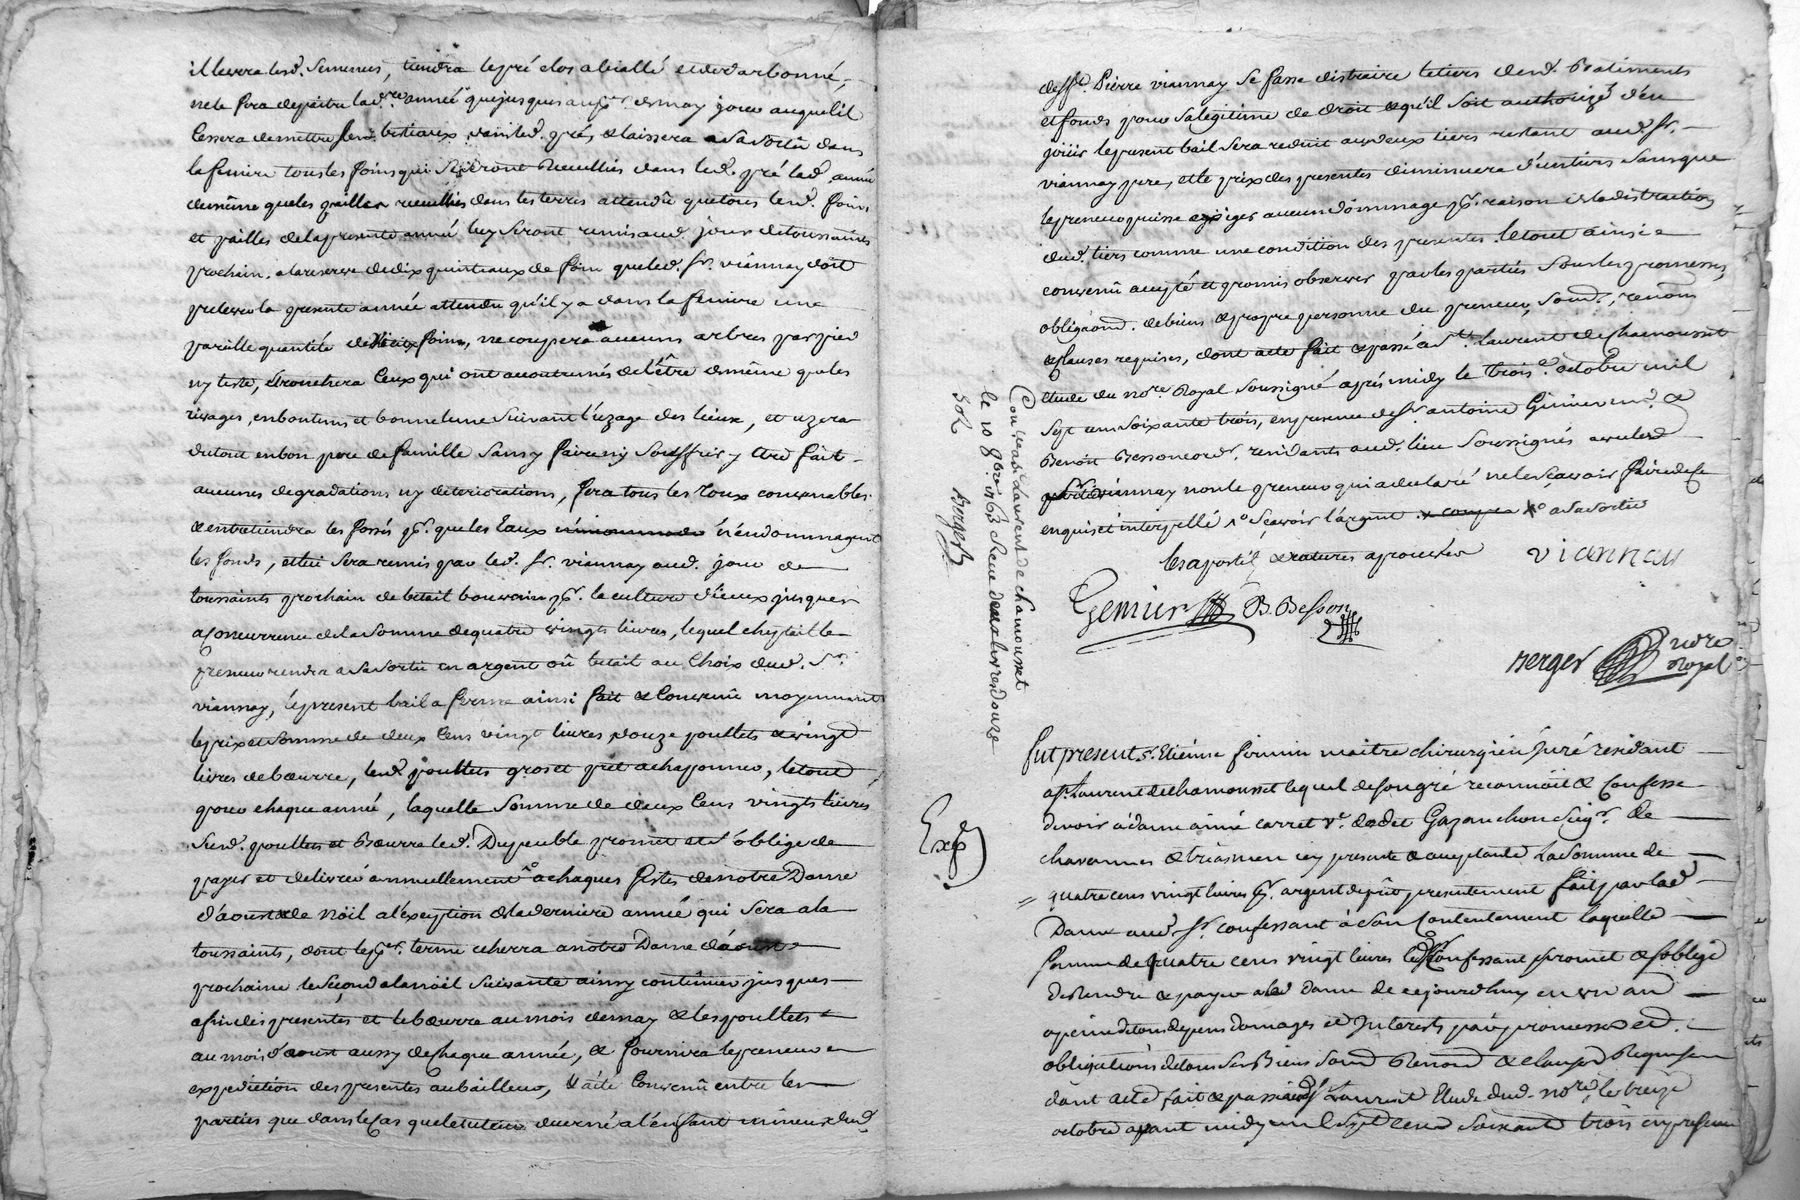 il levera lesd. semences, tiendra le pré clos abiallé et derdarbonné,
ne le fera depaitre lad. re année que jusques au pr. de may jour auquel il
cessera de mettre ses bestiaux dans led. pré, & laissera a sa sortie dans
la feniere tous les foins qui se seront recueillies dans led. pré lad. année
de même que les pailles recueillies dans les terres attendû que tous lesd. foins
et pailles de la presente année luy seront remis aud. jour de toussaints
prochain, a la reserve de dix quintaux de foin que led. sr. viannay doit
prelever la presente année attendu qu'il y a dans la feniere une
pareille quantité de vieux foins, ne coupera aucuns arbres par pied
ny teste, ebronchera ceux qui ont accoutumés de l'être de même que les
rivages, en bon tems et bonne lune suivant l'uzage des lieux, et uzera
du tout en bon pere de famille sans y faire ny souffrir y être fait
aucunes degradations ny deteriorations, fera tous les coux convenables
& entretiendra les fossés pr. que les eaux n'endommagent
les fonds, et lui sera remis par led. sr. viannay aud. jour de
toussaints prochain de betail bouvain pr. la culture d'iceux jusques
a concurrence de la somme de quatre vingts livres, lequel cheptail le
preneur rendra a sa sortie en argent oû betail au choix dud. sr.
viannay, le present bail a ferme ainsi fait & convenu moyennant
le prix et somme de deux cens vingt livres douze poullets & vingt
livres de bœurre, lesd. poullets gros et pret a chaponner, le tout
pour chaque année, laquelle somme de deux cens vingts livres
susd. poullets et bœurre led. Dupeuble promet et s'oblige de
payer et delivrer annuellement a chaques festes de notre Dame
d'aoust & de Nöel a l'exception de la derniere année qui sera a la
toussaints, dont le pr. terme echerra a notre Dame d'aoust
prochaine le second a la nöel suivante ainsy continuer jusques
a fin des presentes et le bœurre au mois de may & les poullets
au mois d'aoust aussy de chaque année, & fournira le preneur
expedition des presentes au bailleur, a été convenu entre les
parties que dans le cas que le tuteur decerné a l'enfant mineur dud.
defft. Pierre viannay se fasse distraire le tiers desd. Batiments
et fonds pour sa legitime de droit & qu'il soit authorizé d'en
joüir le present bail sera reduit aux deux tiers restant aud. sr.
viannay pere, et le prix des presentes diminuera d'un tiers sans que
le preneur puisse exiger aucun dommage pr. raison de la distraction
dud. tiers comme une condition des presentes. le tout ainsi
convenû accepté et promis observer par les parties sous les promesses,
obligaõns. de biens & propre personne du preneur, soumd., renons
& clauses requises, dont acte fait & passé a st. laurent de chamousset
etude du nore. Royal soussigné après midy le trois e. octobre mil
sept cens soixante trois, en presence de sr. antoine Genier md. &
Benoit Besson cord. residants aud. lieu soussignés avec led.
sr. viannay non le preneur qui a declaré ne le sçavoir faire de ce
enquis et interpellé 1o sçavoir l'argent xo a sa sortie
les apostil & ratures aprouvées viannay
Genier B. Besson
Berger nore Royal
Con. a st Laurent de chamousset
le 10 8bre 1763 Receu deux livres douze
sols Berger
fut present sr. Etienne formin maitre chirurgien Juré residant
a st. Laurent de chamousset lequel de son gré reconnoit & confesse
devoir a dame aimé carret ve. de Gazanchon seigr. de
chavannes & trasmen icy presente & acceptante La somme de
quatre cens vingt livres pr. argent de prêt presentement fait par lad.
Dame aud. sr. confessant a son contentement laquelle
somme de quatre cens vingt livres led. sr confessant promet & s'oblige
de Rendre & payer a lad Dame de cejourdhuy en un an
a peine de tous depens domages et Interests par promesses et
obligations de tous ses Biens soumd Renond & clauses Requises
dont acte fait & passé aud. st. Laurent Etude dud. nore. le treize
octobre avant midy mil sept cens soixante trois en presence
Exp